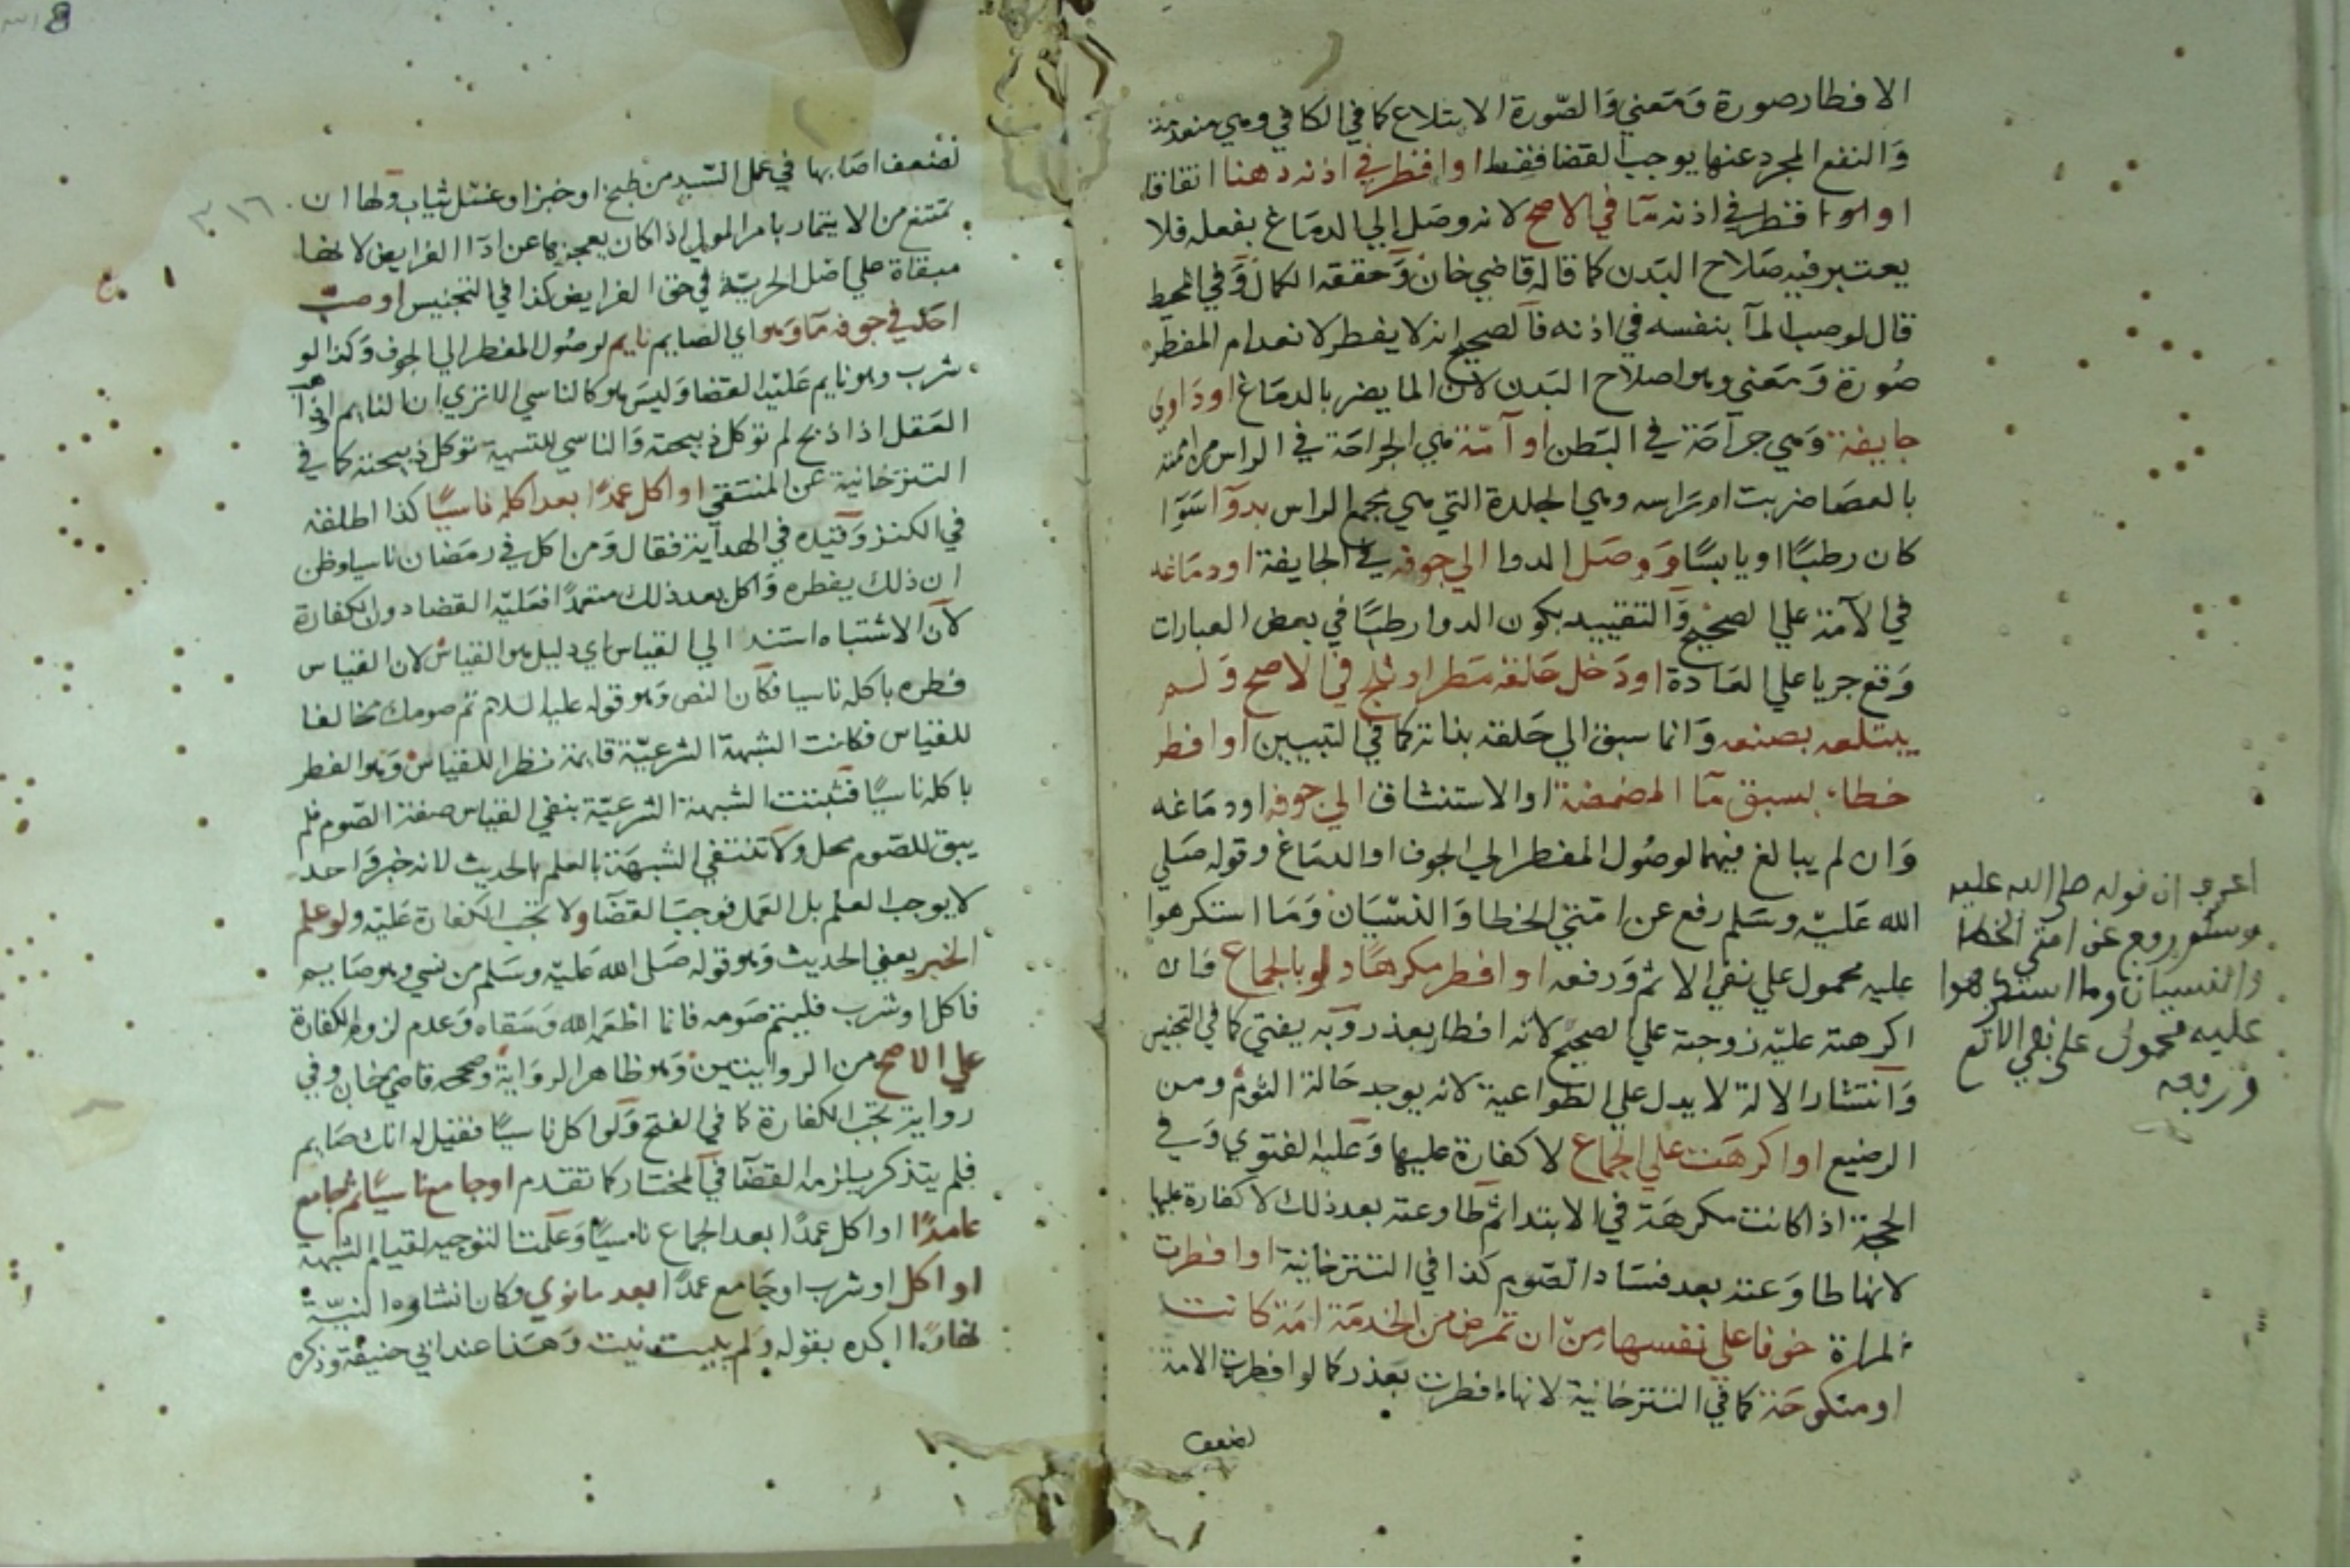 الافطار صورة ومعني والصورة الابتلاع كما في الكافي وهي منعدمة
والنفع المجرد عنها يوجب القضا فقط او افطر في اذنه دهنا اتفاقا
او لو اقطر في اذنه ما في الاصح لانه وصل الي الدماغ بفعله فلا
يعتبر فيه صلاح البدن كما قاله قاضي خان وحققه الكمال وفي المحيط
قال لو صب الما بنفسه في اذنه فالصحيح انه لا يفطر لانعدام المفطر
صورة ومعني وهو اصلاح البدن لان الما يضر بالدماغ او داوي
جايفة وهي جراحة في البطن او آمة هي الجراحة في الراس من اممته
بالعصا ضربت ام راسه وهي الجلدة التي هي مجمع الراس بدوآ سوا
كان رطبا او يابسا ووصل الدوا الي جوفه في الجايفة او دماغه
في الآمة علي الصحيح والتقييد بكون الدوا رطبا في بعض العبارات
وقع جريا علي العادة او دخل حلقه مطر او ثلج في الاصح ولم
يبتلعه بصنعه وانما سبق الي حلقه بذاته كما في التبيين او افطر
خطاء بسبق مآ المضمضة او الاستنشاق الي جوفه او دماغه
وان لم يبالغ فيهما لوصول المفطر الي الجوف او الدماغ وقوله صلي
الله عليه وسلم رفع عن امتي الخطا والنسيان وما استكرهوا
عليه محمول علي نفي الاثم ورفعه او افطر مكرها ولو بالجماع فان
اكرهته عليه زوجته علي الصحيح لانه افطار بعذر وبه يفتي كما في التجنيس
وانتشار الالة لا يدل علي الطواعية لانه يوجد حالة النوم ومن
الرضيع او اكرهت علي الجماع لا كفارة عليها وعليه الفتوي وفي
الحجة اذا كانت مكرهة في الابتدا ثم طاوعته بعد ذلك لا كفارة عليها
لانها طاوعته بعد فساد الصوم كذا في التترخانية او افطرت
المراة خوفا علي نفسها من ان تمرض من الخدمة امة كانت
او منكوحة كما في التترخانية لانها افطرت بعذر كما لو افطرت الامة
لضعف
اعرو ان قوله صلى الله عليه
وسلم رفع عن امتي الخطا
والنسيان وما استكرهوا
عليه محمول على نفي الاثم
ورفعه
٣١٦
لضعف اصابها في عمل السيد من طبخ او خبز او غسل ثياب ولها ان
تمتنع من الايتمار بامر المولي اذا كان يعجزها عن ادآ الفرايض لانها
مبقاة علي اصل الحرية في حق الفرايض كذا في التجنيس او صب
احد في جوفه مآ وهو اي الصايم نايم لوصول المفطر الي الجوف وكذا لو
شرب وهو نايم عليه القضا وليس هو كالناسي الا تري ان النايم او ذاهب
العقل اذا ذبح لم تؤكل ذبيحته والناسي للتسمية تؤكل ذبيحته كما في
التترخانية عن المنتقي او اكل عمدا بعد اكله ناسيا كذا اطلقه
في الكنز وقيده في الهداية فقال ومن اكل في رمضان ناسيا وظن
ان ذلك يفطره واكل بعد ذلك متعمدا فعليه القضا دون الكفارة
لان الاشتباه استند الي القياس اي دليل هو القياس لان القياس
فطره باكله ناسيا فكان النص وهو قوله عليه السلام تم صومك مخالفا
للقياس فكانت الشبهة الشرعية قايمة نظرا للقياس وهو الفطر
باكله ناسيا فثبتت الشبهة الشرعية بنفي القياس صفة الصوم فلم
يبق للصوم محل ولا تنتفي الشبهة بالعلم بالحديث لانه خبر واحد
لا يوجب العلم بل العمل فوجب القضا ولا تجب الكفارة عليه ولو علم
الخبر يعني الحديث وهو قوله صلى الله عليه وسلم من نسي وهو صايم
فاكل او شرب فليتم صومه فانما اطعمه الله وسقاه وعدم لزوم الكفارة
علي الاصح من الروايتين وهو ظاهر الرواية وصححه قاضي خان وفي
رواية تجب الكفارة كما في الفتح ولو اكل ناسيا فقيل له انك صايم
فلم يتذكر يلزمه القضآ في المختار كما تقدم او جامع ناسيا ثم جامع
عامدا او اكل عمدا بعد الجماع ناسيا وعلمت التوجيه لقيام الشبهة
او اكل او شرب او جامع عمدا بعد ما نوي وكان انشاوه النية
نهارا اكده بقوله ولم يبيت نيته وهذا عند ابي حنيفة وذكره